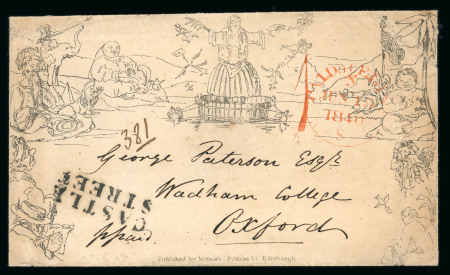 PAID
1840
381
George Paterson Esqr
Wadham College
Oxford
CASTLE
STREET
ppaid.
Published by Menzies, Princes St. Edinburgh.